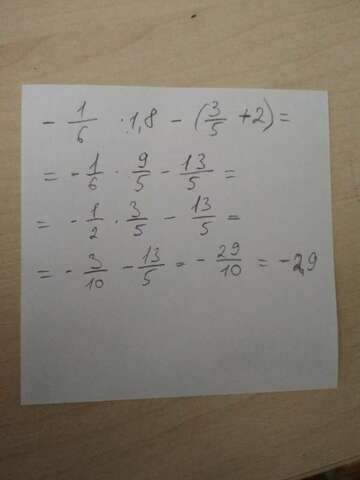 - 1/6 · 1,8 - (3/5 + 2) =
= - 1/6 · 9/5 - 13/5 =
= - 1/2 · 3/5 - 13/5 =
= - 3/10 - 13/5 = - 29/10 = -2,9